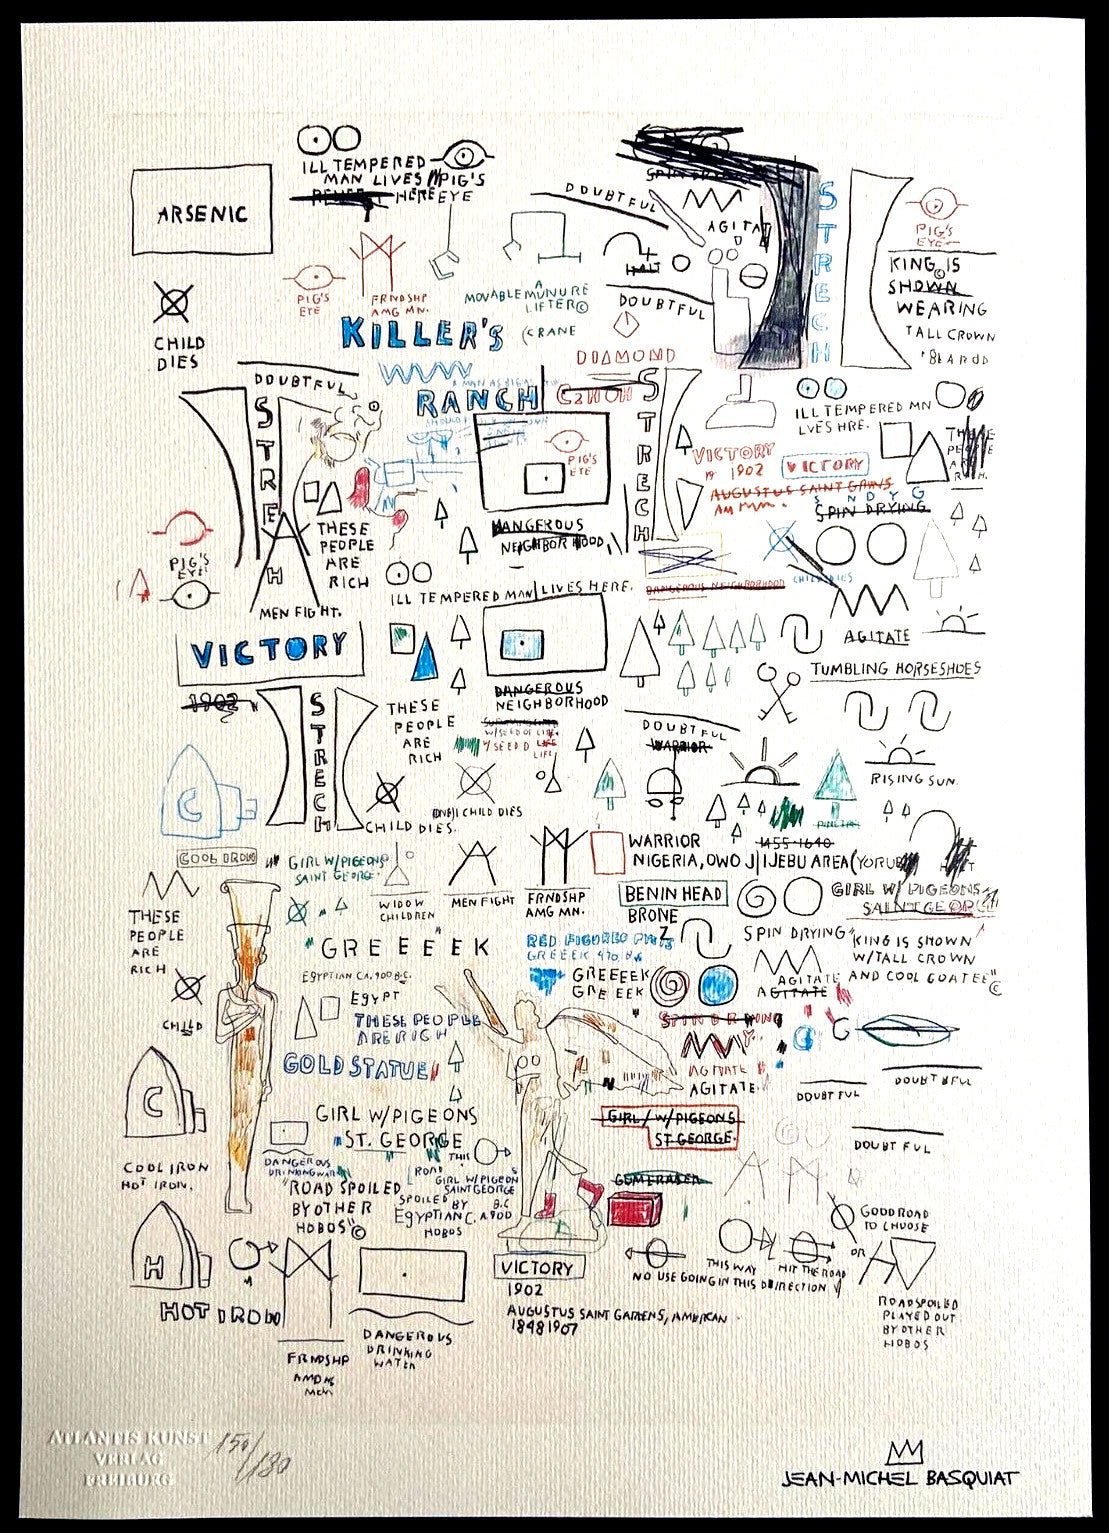 ILL TEMPERED
MAN LIVES
HERE
PIG'S
EYE
ARSENIC
CHILD
DIES
PIG'S
EYE
FRNDSHP
AMG MN.
A
MOVABLE MUNURE
LIFTER©
(CRANE
KILLER'S
RANCH
DOUBTFUL
SPIN DRYING
AGITAT
HALT
DOUBTFUL
DIAMOND
STRECH
PIG'S
EYE
KING© IS
SHOWN
WEARING
TALL CROWN
DOUBTFUL
STRECH
THESE
PEOPLE
ARE
RICH
PIG'S
EYE
MEN FIGHT.
PIG'S
EYE
DANGEROUS
NEIGHBORHOOD,
STRECH
VICTORY
1902
VICTORY
AUGUSTUS SAINT GAINS
ILL TEMPERED MN
LVES HRE.
THESE
PEOPLE
SPIN DRYING
CHILD DIES
ILL TEMPERED MAN LIVES HERE.
DANGEROUS NEIGHBORHOOD
AGITATE
VICTORY
1902
STRECH
THESE
PEOPLE
ARE
RICH
DANGEROUS
NEIGHBORHOOD
W/SEED OF LIFE
Y SEED LIFE
LIFE
TUMBLING HORSESHOES
DOUBTFUL
WARRIOR
RISING SUN.
CHILD DIES.
CHILD DIES
C
COOL IRON
GIRL W/PIGEONS
SAINT GEORGE.
WIDOW
CHILDREN
MEN FIGHT
FRNDSHP
AMG MN.
WARRIOR
1455-1640
NIGERIA, OWO JIJEBU AREA (YORUB
BENIN HEAD
BRONE
Z
GIRL W/PIGEONS
SAINT GEORGE
THESE
PEOPLE
ARE
RICH
CHILD
"GREEEEK
EGYPTIAN CA. 900 B.C.
EGYPT
THESE PEOPLE
ARE RICH
GOLD STATUE
RED FIGURED
GREEEK 470
GREEEEK
GREEEK
SPIN DRYING
AGITATE
AGITATE
"KING IS SHOWN
W/TALL CROWN
AND COOL GOATEE"
©
SPIN DRYING
AGITATE
AGITATE.
DOUBTFUL
DOUBTFUL
DOUBTFUL
C
COOL IRON
HOT IRON.
GIRL W/PIGEONS
ST. GEORGE
DANGEROUS
DRINKING WATER
"ROAD SPOILED
BY OTHER
HOBOS"©
THIS
ROAD
SPOILED BY
HOBOS
GIRL W/PIGEONS
SAINT GEORGE
B.C
EGYPTIAN C. A 900
GIRL/W/PIGEONS
ST GEORGE.
GUM ERASER
GOOD ROAD
TO CHOOSE
OR
H
HOT IRON
FRNDSHP
AMONG
MEN
DANGEROUS
DRINKING
WATER
VICTORY
1902
AUGUSTUS SAINT GARDENS, AMERICAN
18481907
THIS WAY
HIT THE ROAD
NO USE GOING IN THIS DIRECTION
ROAD SPOILED
PLAYED OUT
BY OTHER
HOBOS
ATLANTIS KUNST
VERLAG
FREIBURG
150/180
JEAN-MICHEL BASQUIAT